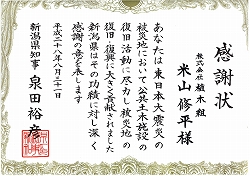 感謝状
株式会社 植木組
米山 修平様
あなたは東日本大震災の
被災地において公共土木施設の
復旧活動に尽力し被災地の
復旧・復興に大きく貢献されました
新潟県はその功績に対し深く
感謝の意を表します
平成二十八年八月二十二日
新潟県知事 泉田裕彦